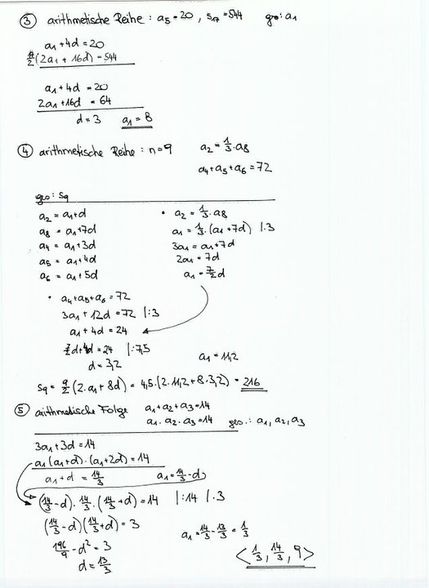 ③ arithmetische Reihe: a₅=20, s₁₇=544 ges: a₁
a₁+4d=20
17/2(2a₁+16d)=544
a₁+4d=20
2a₁+16d=64
d=3 a₁=8
④ arithmetische Reihe: n=9 a₂=1/3·a₈
a₄+a₅+a₆=72
ges: s₉
a₂=a₁+d • a₂=1/3·a₈
a₈=a₁+7d a₁=1/3·(a₁+7d) |·3
a₄=a₁+3d 3a₁=a₁+7d
a₅=a₁+4d 2a₁=7d
a₆=a₁+5d a₁=7/2d
• a₄+a₅+a₆=72
3a₁+12d=72 |:3
a₁+4d=24
7/2d+4d=24 |:7,5
d=3,2 a₁=11,2
s₉=9/2(2·a₁+8d)=4,5·(2·11,2+8·3,2)=216
⑤ arithmetische Folge a₁+a₂+a₃=14
a₁·a₂·a₃=14 ges.: a₁, a₂, a₃
3a₁+3d=14
a₁(a₁+d)·(a₁+2d)=14
a₁+d=14/3 a₁=14/3-d
(14/3-d)·14/3·(14/3+d)=14 |:14 |·3
(14/3-d)(14/3+d)=3 a₁=14/3-13/3=1/3
196/9-d²=3
d=13/3 <1/3, 14/3, 9>